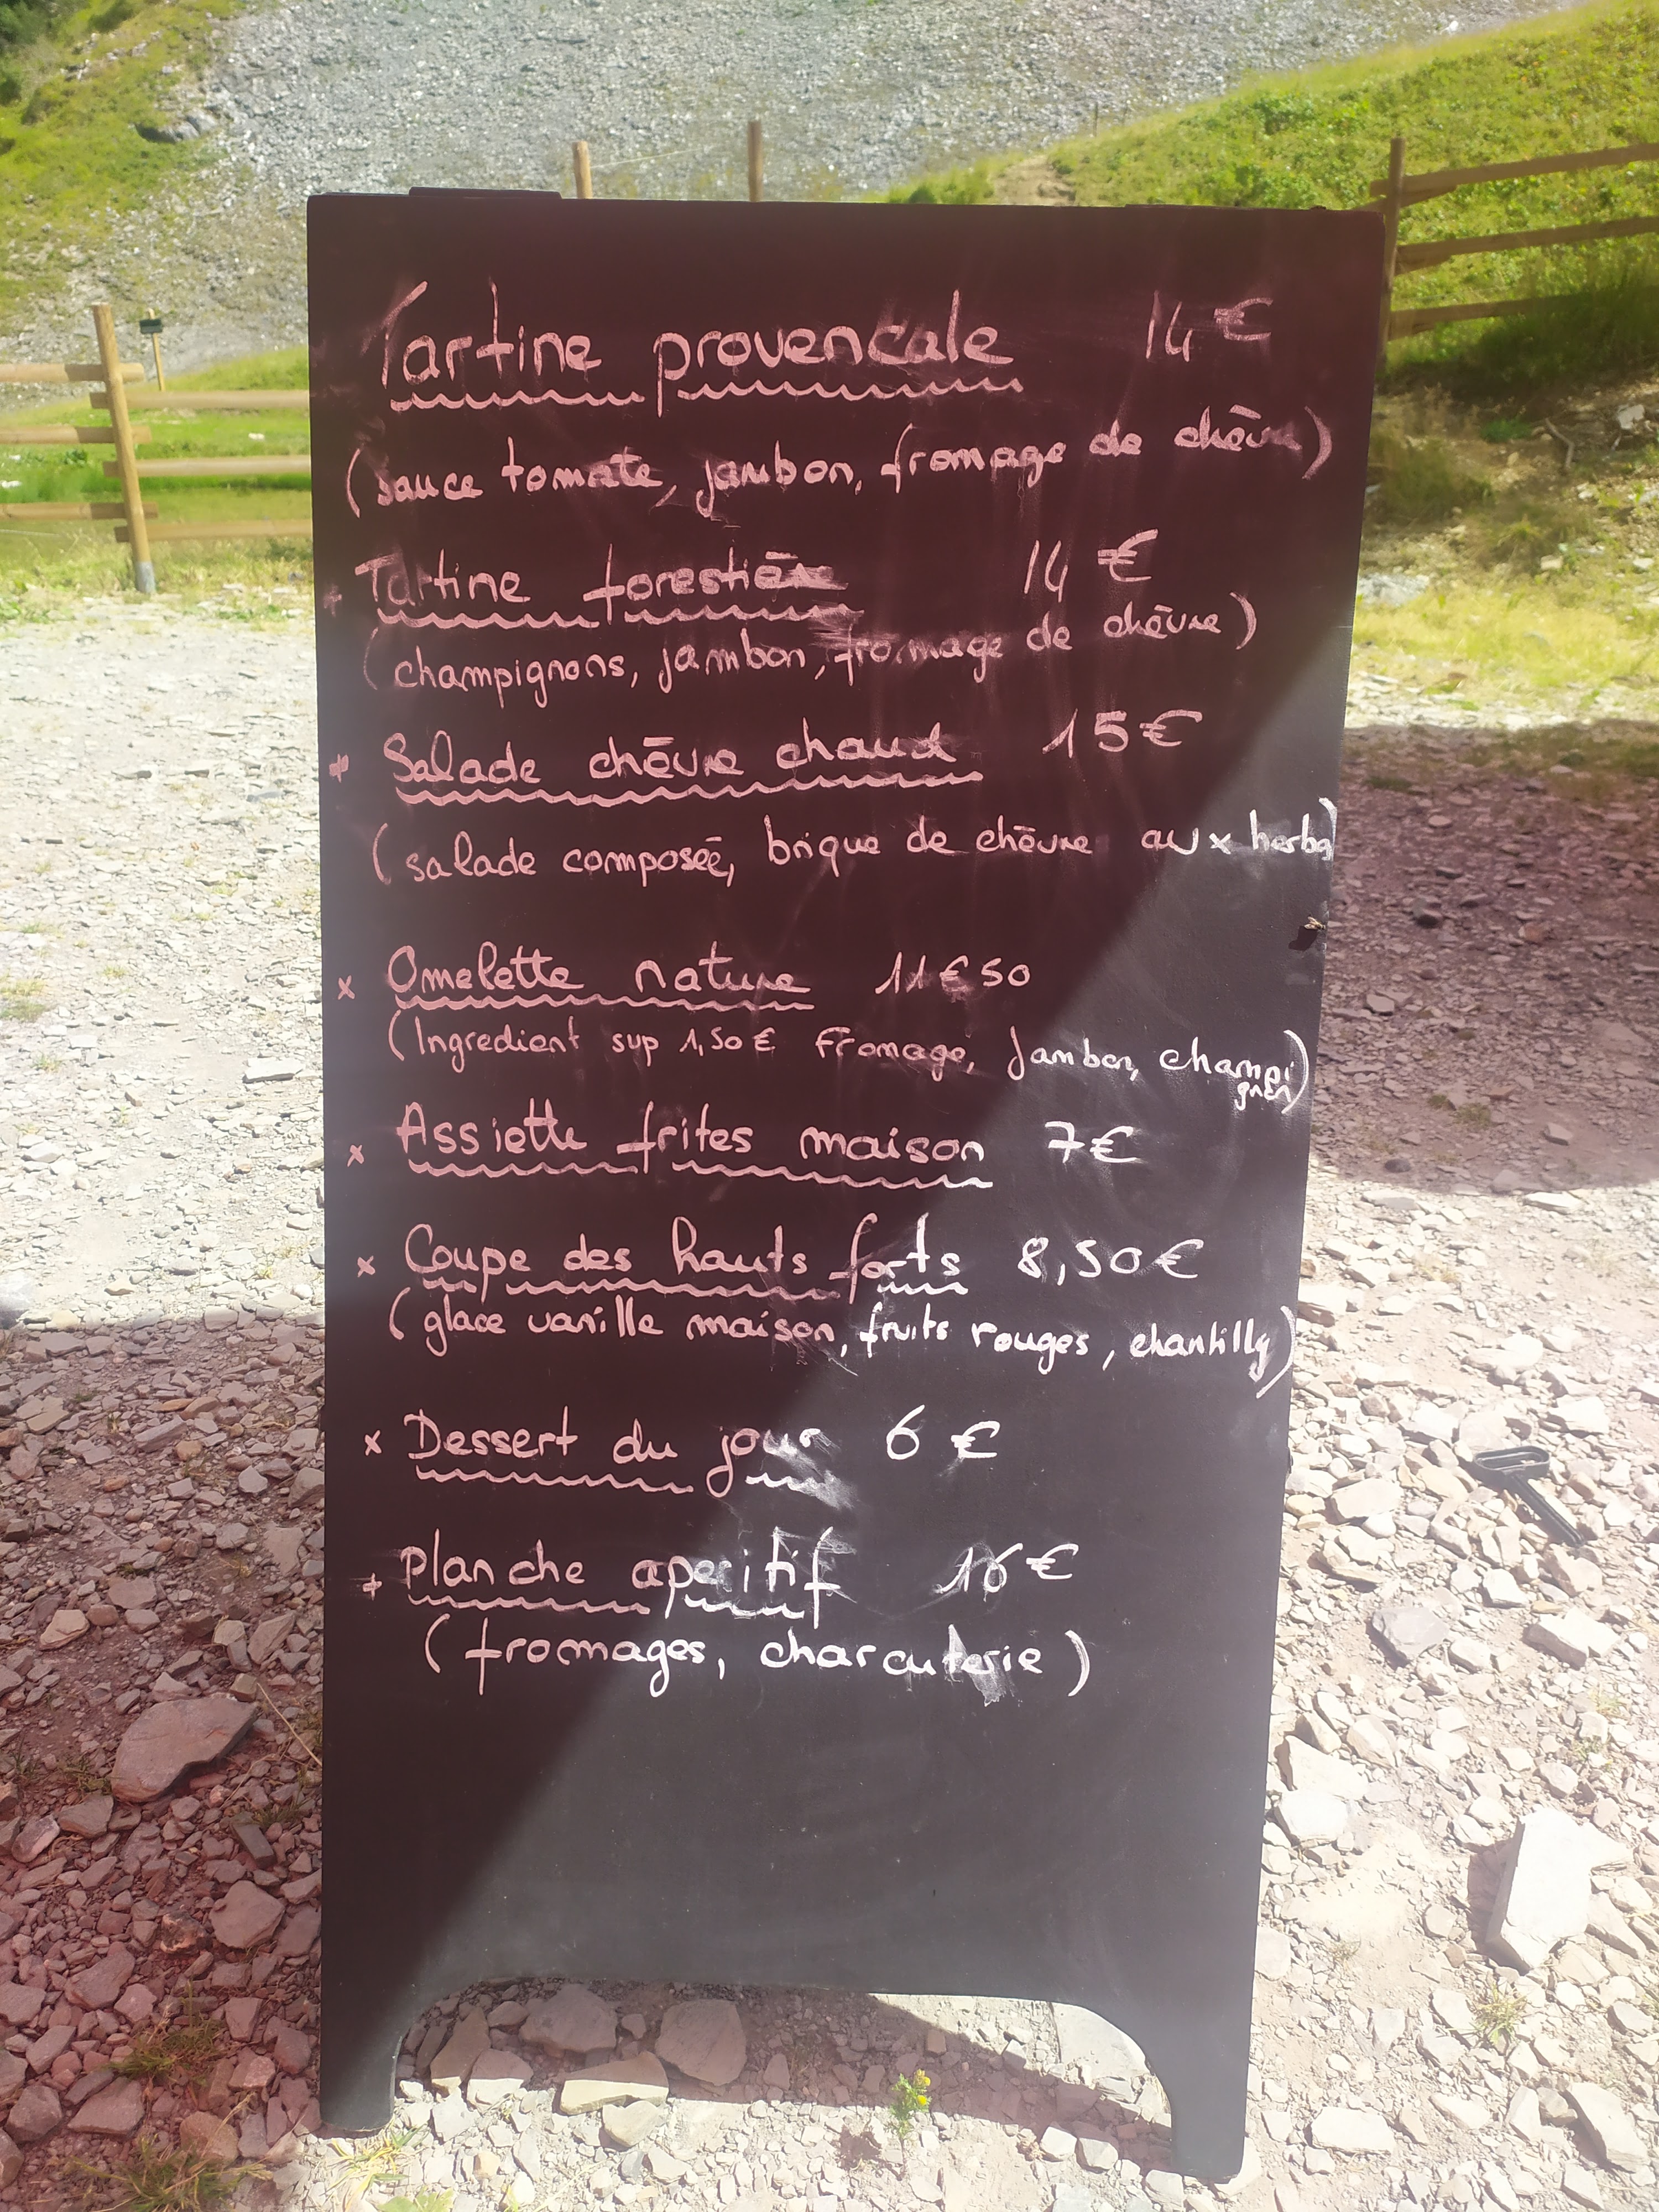 Tartine provencale 14€
(sauce tomate, jambon, fromage de chèvre)
+ Tartine forestière 14€
(champignons, jambon, fromage de chèvre)
+ Salade chèvre chaud 15€
(salade composée, brique de chèvre aux herbes)
x Omelette nature 11€50
(Ingredient sup 1,50€ Fromage, Jambon, champi
gnon)
x Assiette frites maison 7€
x Coupe des hauts forts 8,50€
(glace vanille maison, fruits rouges, chantilly)
x Dessert du jour 6€
+ Planche aperitif 16€
(fromages, charcuterie)